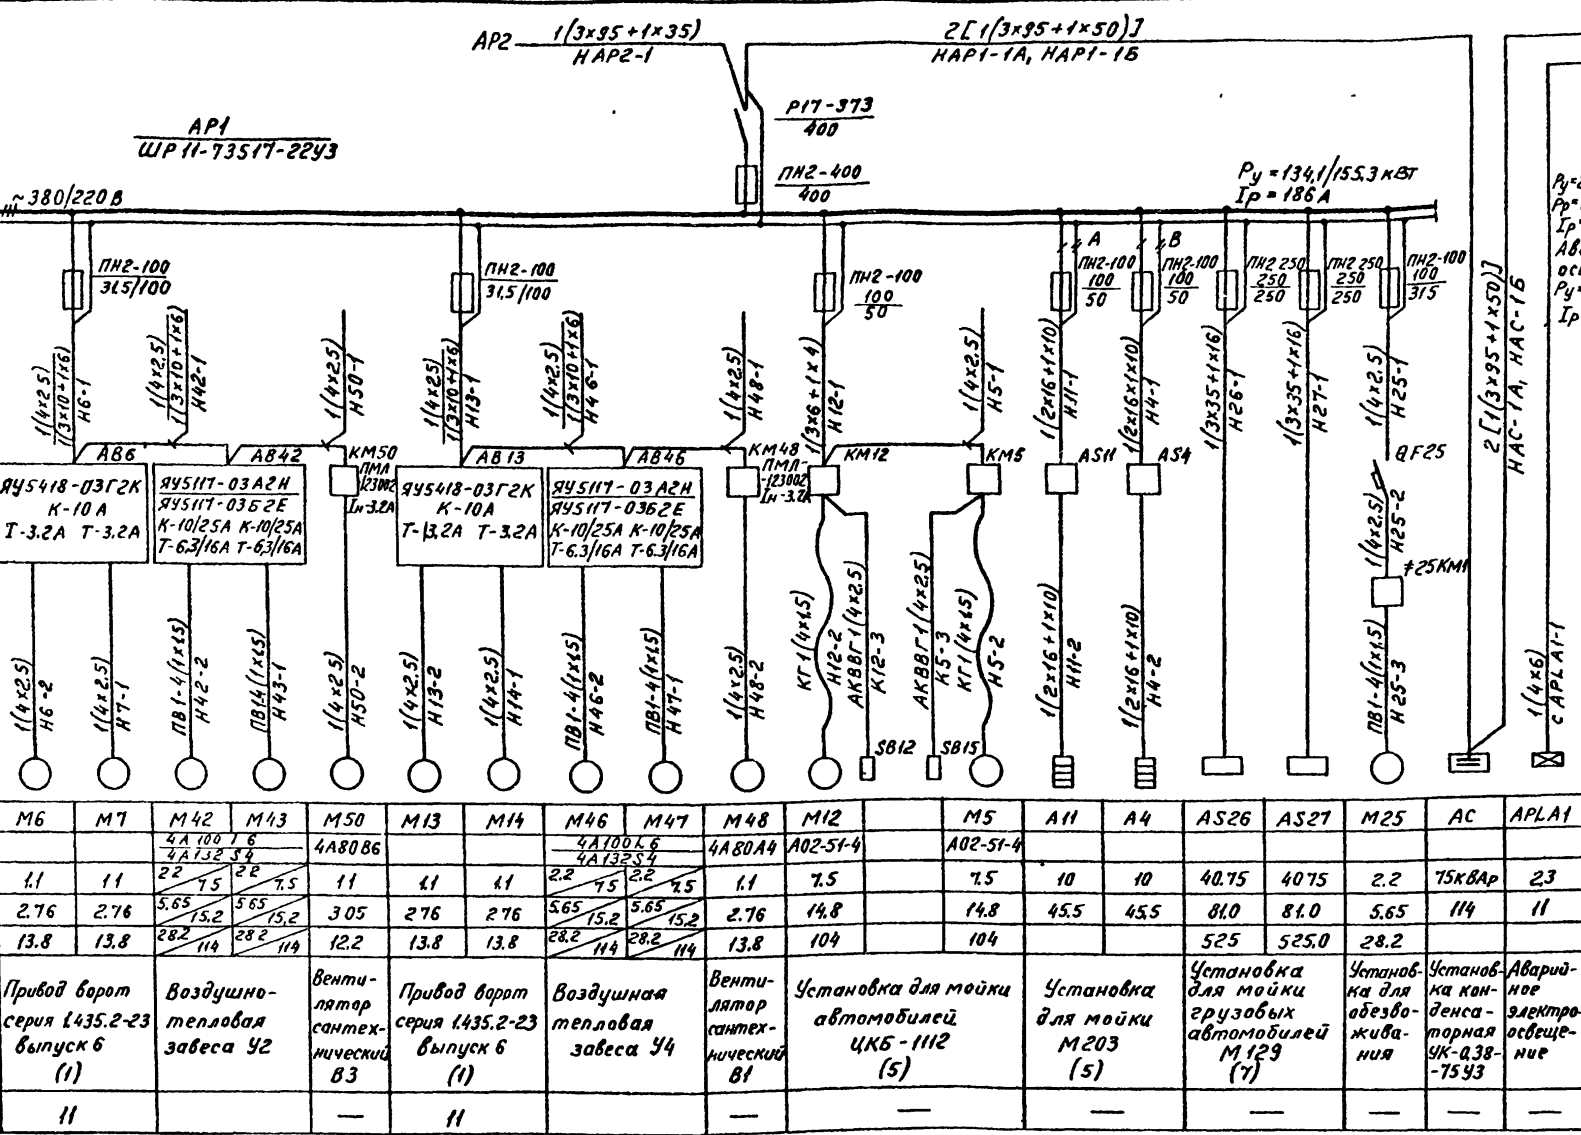 АР2
1(3×95+1×35)
НАР2-1
2[1(3×95+1×50)]
НАР1-1А, НАР1-1Б
Р17-373
400
АР1
ШР 11-73517-22У3
ПН2-400
400
Ру = 134,1/155,3 кВт
Iр = 186 А
~380/220 В
Ру=
Рр=
Iр=
Ру=
Iр
ПН2-100
31,5/100
ПН2-100
31,5/100
ПН2-100
100
50
А
ПН2-100
100
50
В
ПН2-100
100
50
ПН2 250
250
250
ПН2 250
250
250
ПН2-100
100
31,5
1(4×2,5)
1(3×10+1×6)
Н6-1
1(4×2,5)
1(3×10+1×6)
Н42-1
1(4×2,5)
Н50-1
1(4×2,5)
1(3×10+1×6)
Н13-1
1(4×2,5)
1(3×10+1×6)
Н46-1
1(4×2,5)
Н48-1
1(3×6+1×4)
Н12-1
1(4×2,5)
Н5-1
1(2×16+1×10)
Н11-1
1(2×16×1×10)
Н4-1
1(3×35+1×16)
Н26-1
1(3×35+1×16)
Н27-1
1(4×2,5)
Н25-1
2[1(3×95+1×50)]
НАС-1А, НАС-1Б
АВ6
АВ42
КМ50
ПМЛ
-123002
Iн-3.2А
АВ13
АВ46
КМ48
ПМЛ-
-123002
Iн-3.2А
КМ12
КМ5
АS11
АS4
QF25
ЯУ5418-03Г2К
К-10 А
Т-3.2А Т-3.2А
ЯУ5117-03А2Н
ЯУ5117-03Б2Е
К-10/25А К-10/25А
Т-6.3/16А Т-6,3/16А
ЯУ5418-03Г2К
К-10А
Т-3.2А Т-3.2А
ЯУ5117-03А2Н
ЯУ5117-03Б2Е
К-10/25А К-10/25А
Т-6.3/16А Т-6.3/16А
1(4×2,5)
Н25-2
≠25КМ1
1(4×2.5)
Н6-2
1(4×2.5)
Н7-1
ПВ1-4(1×1,5)
Н42-2
ПВ1.4(1×1,5)
Н43-1
1(4×2.5)
Н50-2
1(4×2.5)
Н13-2
1(4×2.5)
Н14-1
ПВ1-4(1×1,5)
Н46-2
ПВ1-4(1×1,5)
Н47-1
1(4×2.5)
Н48-2
КГ1(4×1,5)
Н12-2
АКВВГ1(4×2,5)
К12-3
АКВВГ1(4×2,5)
К5-3
КГ1(4×1,5)
Н5-2
1(2×16+1×10)
Н11-2
1(2×16+1×10)
Н4-2
ПВ1-4(1×1,5)
Н25-3
1(4×6)
с АРLА1-1
SВ12
SВ15
М6 М7 М42 М43 М50 М13 М14 М46 М47 М48 М12 М5 А11 А4 АS26 АS27 М25 АС АРLА1
4А100L6
4А132S4
4А80В6
4А100L6
4А132S4
4А80А4 А02-51-4 А02-51-4
1.1 11 22/7.5 2.2/7.5 11 1.1 1.1 2.2/75 2.2/7.5 1.1 7.5 7.5 10 10 40.75 4075 2.2 75кВАр 2,3
2.76 2.76 5.65/15.2 5.65/15,2 305 276 276 5.65/15.2 5.65/15.2 2.76 14.8 14.8 45.5 45.5 81.0 81.0 5.65 114 11
13.8 13,8 28.2/114 28.2/114 12.2 13.8 13.8 28.2/114 28.2/114 13.8 104 104 525 525.0 28.2
Привод ворот
серия 1.435.2-23
выпуск 6
(1)
Воздушно-
тепловая
завеса У2
Венти-
лятор
сантех-
нический
В3
Привод ворот
серия 1.435.2-23
выпуск 6
(1)
Воздушная
тепловая
завеса У4
Венти-
лятор
сантех-
нический
В1
Установка для мойки
автомобилей
ЦКБ-1112
(5)
Установка
для мойки
М203
(5)
Установка
для мойки
грузовых
автомобилей
М129
(7)
Установ-
ка для
обезво-
жива-
ния
Установ-
ка кон-
денса-
торная
УК-0,38-
-75У3
Аварий-
ное
электро-
освеще-
ние
11 — 11 — — — — — — —